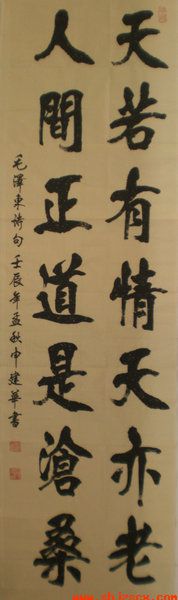 天若有情天亦老
人間正道是滄桑
毛澤東詩句壬辰年孟秋申建華書